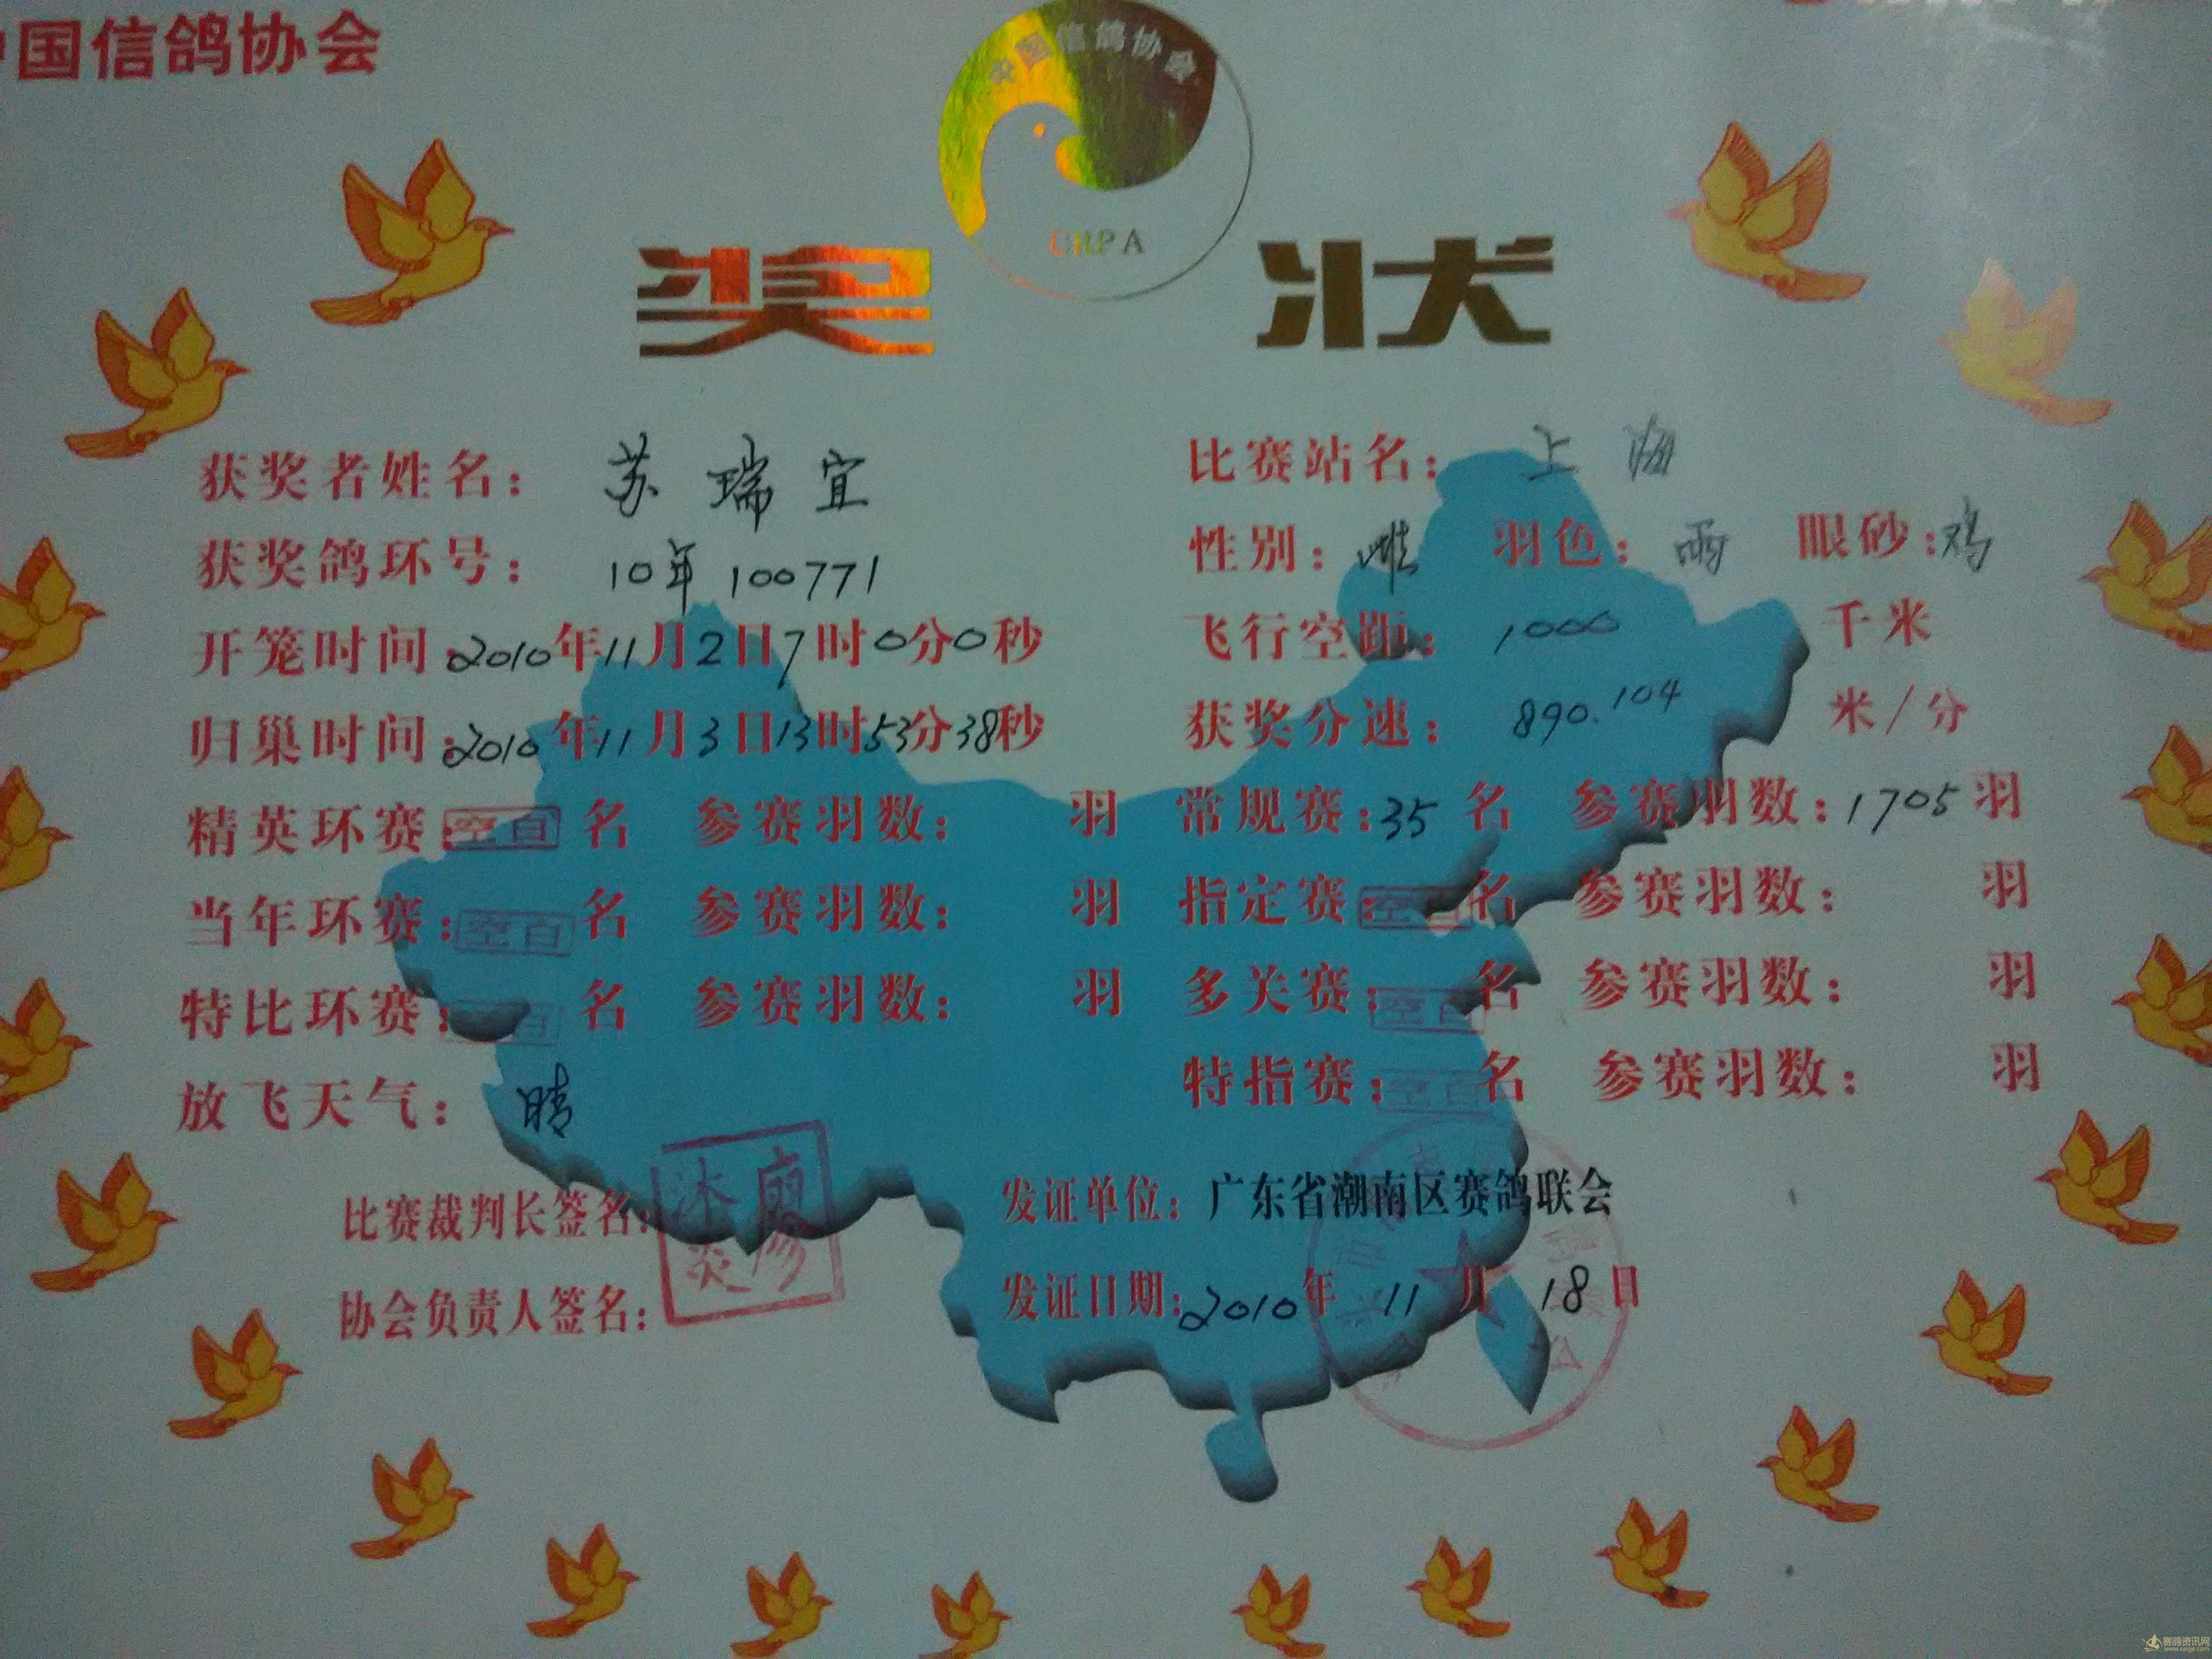 中国信鸽协会
中国信鸽协会
CRPA
奖 状
获奖者姓名: 苏瑞宜 比赛站名: 上海
获奖鸽环号: 10年 100771 性别: 雌 羽色: 雨 眼砂: 鸡
开笼时间: 2010年11月2日7时0分0秒 飞行空距: 1000 千米
归巢时间: 2010年11月3日13时53分38秒 获奖分速: 890.104 米/分
精英环赛: 空白 名 参赛羽数: 羽 常规赛: 35 名 参赛羽数: 1705 羽
当年环赛: 空白 名 参赛羽数: 羽 指定赛: 空白 名 参赛羽数: 羽
特比环赛: 空白 名 参赛羽数: 羽 多关赛: 空白 名 参赛羽数: 羽
放飞天气: 晴 特指赛: 空白 名 参赛羽数: 羽
比赛裁判长签名: 发证单位: 广东省潮南区赛鸽联会
协会负责人签名: 发证日期: 2010年 11月 18日
赛鸽资讯网
www.saige.com